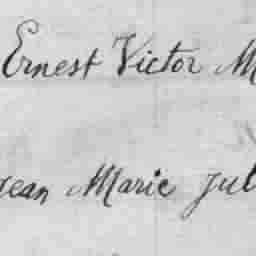 Ernest Victor M
Jean Marie Jul